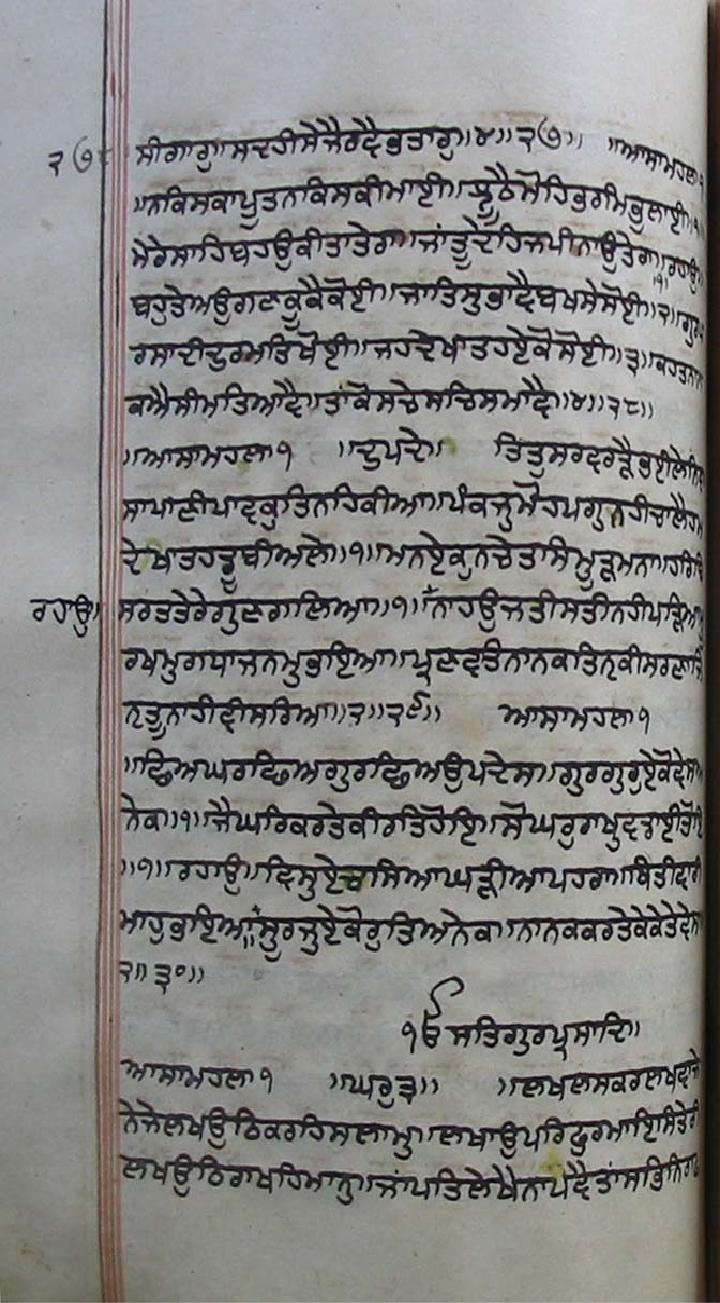 ੨੭ ਸੀਗਾਰੁ॥ਸਦਹੀਸੇਜੈਰਵੈਭਤਾਰੁ॥੪॥੨੭॥ ॥ਆਸਾਮਹਲਾ੧
॥ਨਕਿਸਕਾਪੂਤਨਾਕਿਸਕੀਮਾਈ॥ਝੂਠੈਮੋਹਿਭਰਮਿਭੁਲਾਈ॥੧॥
ਮੇਰੇਸਾਹਿਬਹਉਕੀਤਾਤੇਰਾ॥ਜਾਂਤੂਦੇਹਿਜਪੀਨਾਉਤੇਰਾ॥ਰਹਾਉ
॥੧॥
ਬਹੁਤੇਅਉਗਣਕੂਕੈਕੋਈ॥ਜਾਤਿਸੁਭਾਵੈਬਖਸੇਸੋਈ॥੨॥ਗੁਰਪ
ਰਸਾਦੀਦੁਰਮਤਿਖੋਈ॥ਜਹਦੇਖਾਤਹਏਕੋਸੋਈ॥੩॥ਕਹਤਨਾਨ
ਕਐਸੀਮਤਿਆਵੈ॥ਤਾਂਕੋਸਚੇਸਚਿਸਮਾਵੈ॥੪॥੨੮॥
॥ਆਸਾਮਹਲਾ੧ ॥ਦੁਪਦੇ॥ ਤਿਤੁਸਰਵਰੜੈਭਈਲੇਨਿਵਾ
ਸਾਪਾਣੀਪਾਵਕੁਤਿਨਹਿਕੀਆ॥ਪੰਕਜੁਮੋਹਪਗੁਨਹੀਚਾਲੈਹਮ
ਦੇਖਾਤਹਡੂਬੀਅਲੇ॥੧॥ਮਨਏਕੁਨਚੇਤਸਿਮੂੜਮਨਾ॥ਹਰਿਬਿ
ਰਹਾਉ॥ ਸਰਤਤੇਰੇਗੁਣਗਲਿਆ॥੧॥ਨਾਹਉਜਤੀਸਤੀਨਹੀਪੜਿਆਮੂ
ਰਖਮੁਗਧਾਜਨਮੁਭਇਆ॥ਪ੍ਰਣਵਤਿਨਾਨਕਤਿਨ੍ਹਕੀਸਰਣਾਜਿ
ਨ੍ਹਤੂਨਾਹੀਵੀਸਰਿਆ॥੨॥੨੯॥ ਆਸਾਮਹਲਾ੧
॥ਛਿਅਘਰਛਿਅਗੁਰਛਿਅਉਪਦੇਸ॥ਗੁਰਗੁਰੁਏਕੋਵੇਸਅ
ਨੇਕ॥੧॥ਜੈਘਰਿਕਰਤੇਕੀਰਤਿਹੋਇ॥ਸੋਘਰੁਰਾਖੁਵਡਾਈਤੋਇ
॥੧॥ਰਹਾਉ॥ਵਿਸੁਏਚਸਿਆਘੜੀਆਪਹਰਾ॥ਥਿਤੀਵਾਰੀ
ਮਾਹੁਭਇਆ॥ਸੂਰਜੁਏਕੋਰੁਤਿਅਨੇਕ॥ਨਾਨਕਕਰਤੇਕੇਕੇਤੇਵੇਸ॥
੨॥੩੦॥
ੴਸਤਿਗੁਰਪ੍ਰਸਾਦਿ॥
ਆਸਾਮਹਲਾ੧ ॥ਘਰੁ੩॥ ॥ਲਖਲਸਕਰਲਖਵਾਜੇ
ਨੇਜੇਲਖਉਠਿਕਰਹਿਸਲਾਮੁ॥ਲਖਾਉਪਰਿਫੁਰਮਾਇਸਿਤੇਰੀ
ਲਖਉਠਿਰਾਖਹਿਮਾਨੁ॥ਜਾਂਪਤਿਲੇਖੈਨਾਪਵੈਤਾਂਸਭਿਨਿਰਾਫ